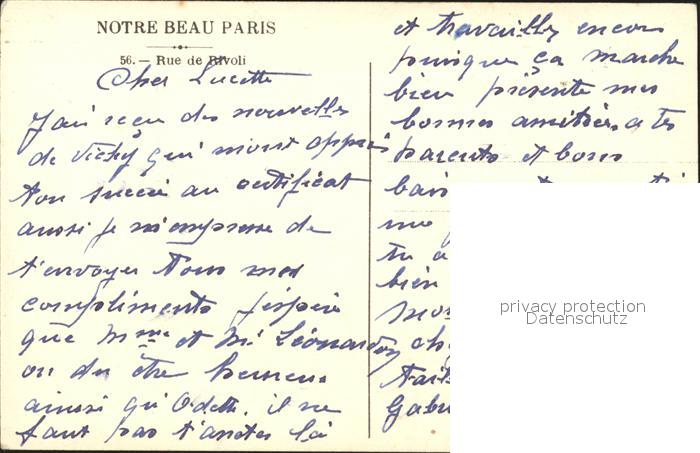 NOTRE BEAU PARIS
56. — Rue de Rivoli
Cher Lucette
J'ai reçu des nouvelles
de Vichy qui mont appris
ton succée au certificat
aussi je m'empresse de
t'envoyer tous mes
compliments j'espère
que Mme et Mr Léonardon
on du être heureux
ainsi qu'Odette. il ne
faut pas t'arreter là
et travailler encore
puisque ça marche
bien présente mes
bonnes amitiées a tes
parents et bons
me
tu a
bien
Gabr
privacy protection
Datenschutz